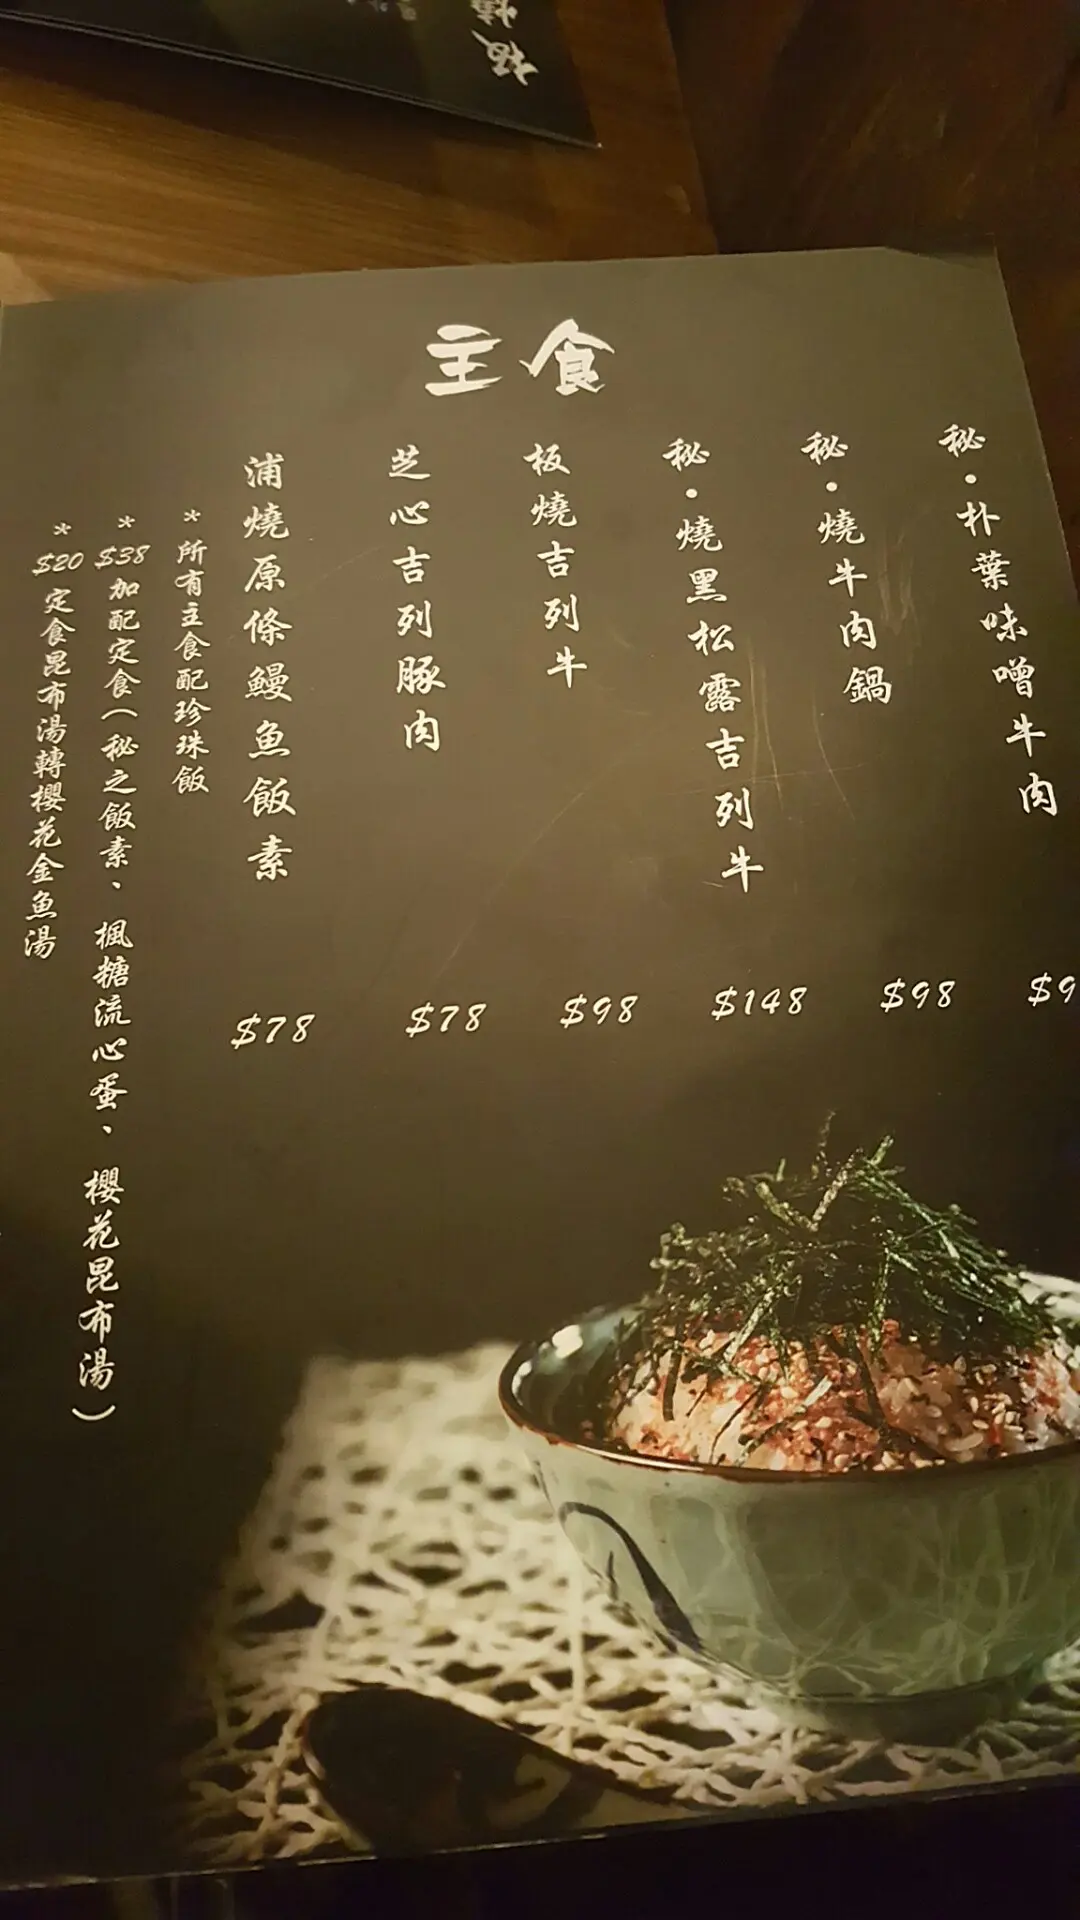 主食
秘·朴葉味噌牛肉
秘·燒牛肉鍋
秘·燒黑松露吉列牛
板燒吉列牛
芝心吉列豚肉
浦燒原條鰻魚飯素
*所有主食配珍珠飯
*$38加配定食(秘之飯素、楓糖流心蛋、櫻花昆布湯)
*$20定食昆布湯轉櫻花金魚湯
$9
$98
$148
$98
$78
$78
板燒